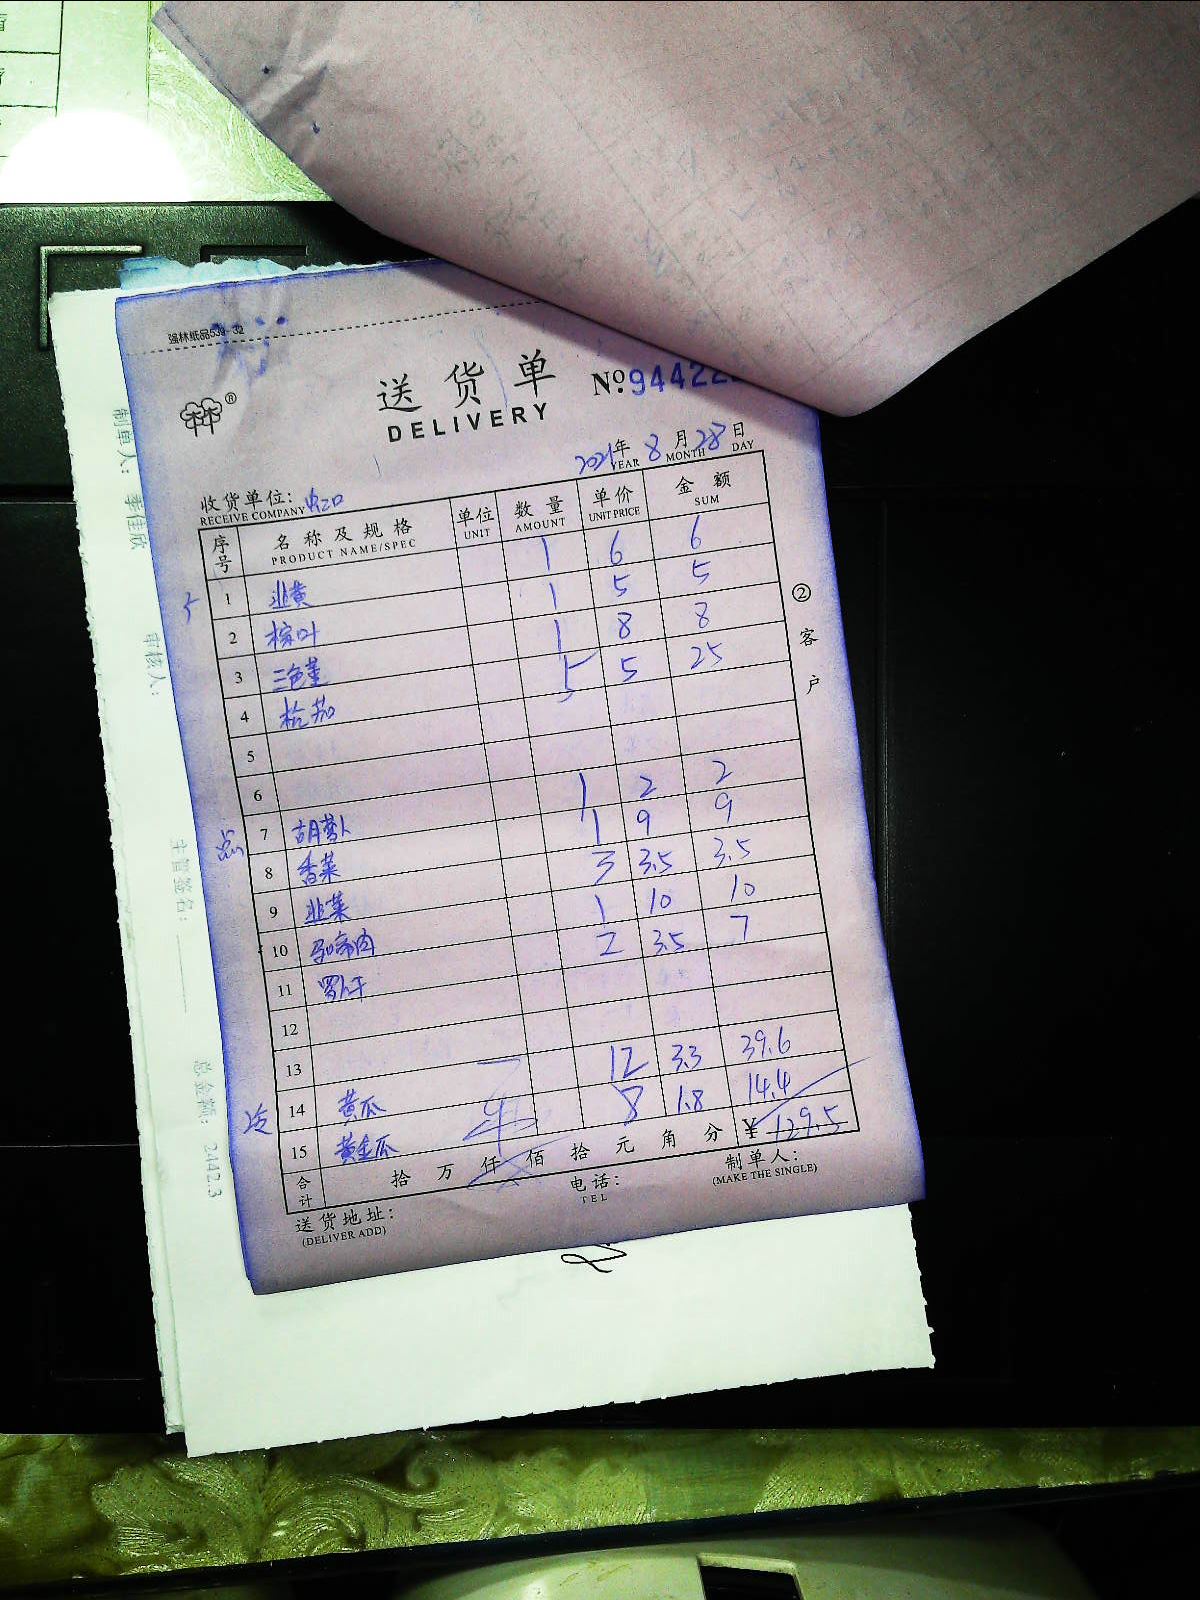 强林纸品539-32
®
送货单
DELIVERY
No.94422
2021年 8月 28日
YEAR MONTH DAY
收货单位: 虹口
RECEIVE COMPANY
序号 名称及规格 单位 数量 单价 金额
PRODUCT NAME/SPEC UNIT AMOUNT UNIT PRICE SUM
1 韭黄 1 6 6
2 棕叶 1 5 5
3 三色堇 1 8 8
4 杭茄 5 5 25
5
6
点 7 胡萝卜 1 2 2
8 香菜 1 9 9
9 韭菜 3 3.5 3.5
10 1 10 10
11 2 3.5 7
12
13
冷 14 黄瓜 12 3.3 39.6
15 黄金瓜 8 1.8 14.4
合计 拾 万 仟 佰 拾 元 角 分 ¥ 129.5
送货地址: 电话: 制单人:
(DELIVER ADD) TEL (MAKE THE SINGLE)
②客户
制单人: 李佳欣
审核人:
主管签名:
总金额: 2442.3